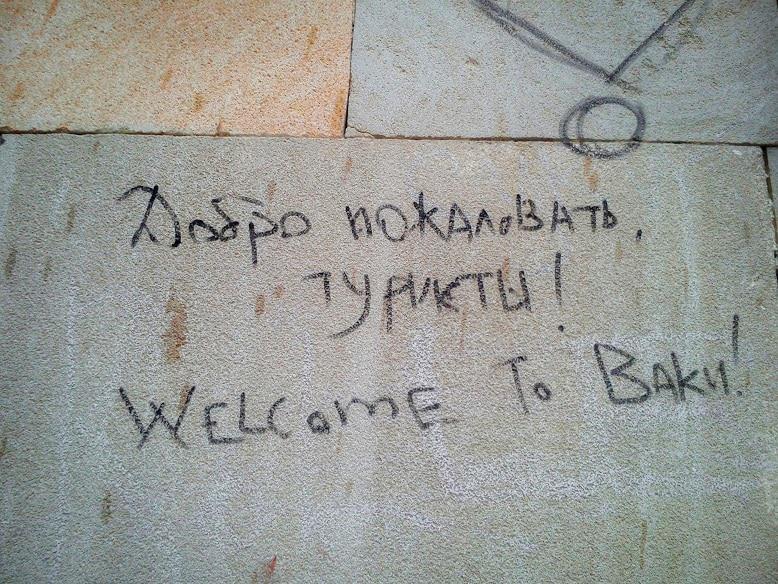 Добро пожаловать,
туристы!
WELCOME TO BAKU!